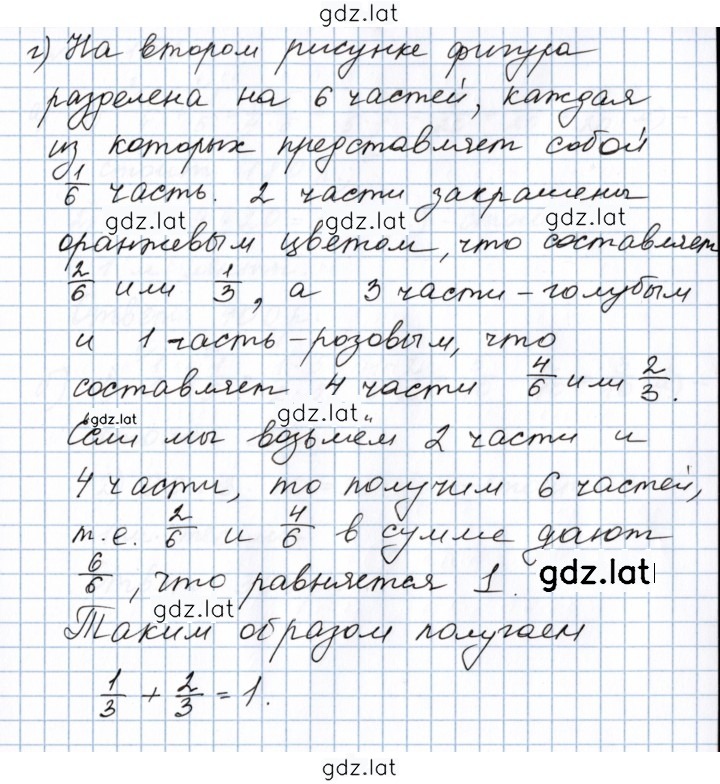 gdz.lat
г) На втором рисунке фигура
разделена на 6 частей, каждая
из которых представляет собой
1/6 часть. 2 части закрашены
gdz.lat gdz.lat gdz.lat
оранжевым цветом, что составляет
2/6 или 1/3, а 3 части - голубым
и 1 часть - розовым, что
составляет 4 части 4/6 или 2/3.
gdz.lat gdz.lat
Если мы возьмём 2 части и
4 части, то получим 6 частей,
т.е. 2/6 и 4/6 в сумме дают
6/6, что равняется 1. gdz.lat
gdz.lat
Таким образом получаем
1/3 + 2/3 = 1.
gdz.lat